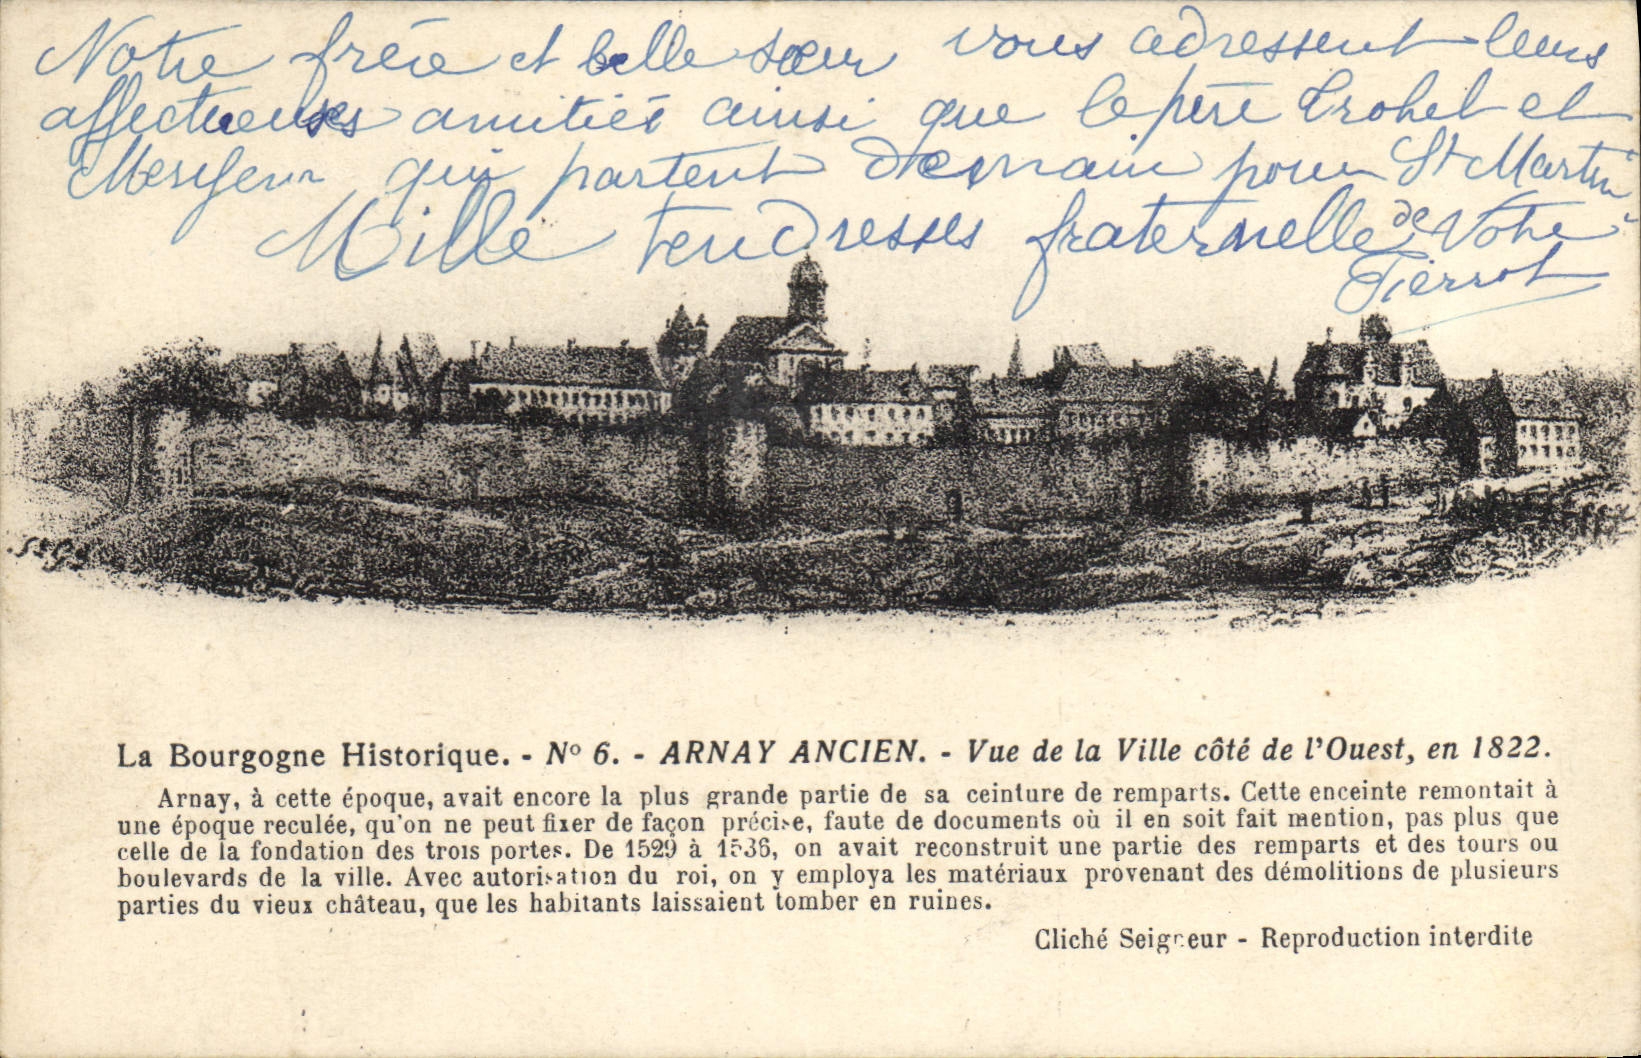 Notre frère et belle sœur vous adressent leurs
affectueuses amitiés ainsi que le père Trohel et
qui partent demain pour St Martin
Mille tendresses fraternelles de Votre
Pierrot
La Bourgogne Historique. - Nº 6. - ARNAY ANCIEN. - Vue de la Ville côté de l'Ouest, en 1822.
Arnay, à cette époque, avait encore la plus grande partie de sa ceinture de remparts. Cette enceinte remontait à
une époque reculée, qu'on ne peut fixer de façon précise, faute de documents où il en soit fait mention, pas plus que
celle de la fondation des trois portes. De 1529 à 1536, on avait reconstruit une partie des remparts et des tours ou
boulevards de la ville. Avec autorisation du roi, on y employa les matériaux provenant des démolitions de plusieurs
parties du vieux château, que les habitants laissaient tomber en ruines.
Cliché Seigneur - Reproduction interdite